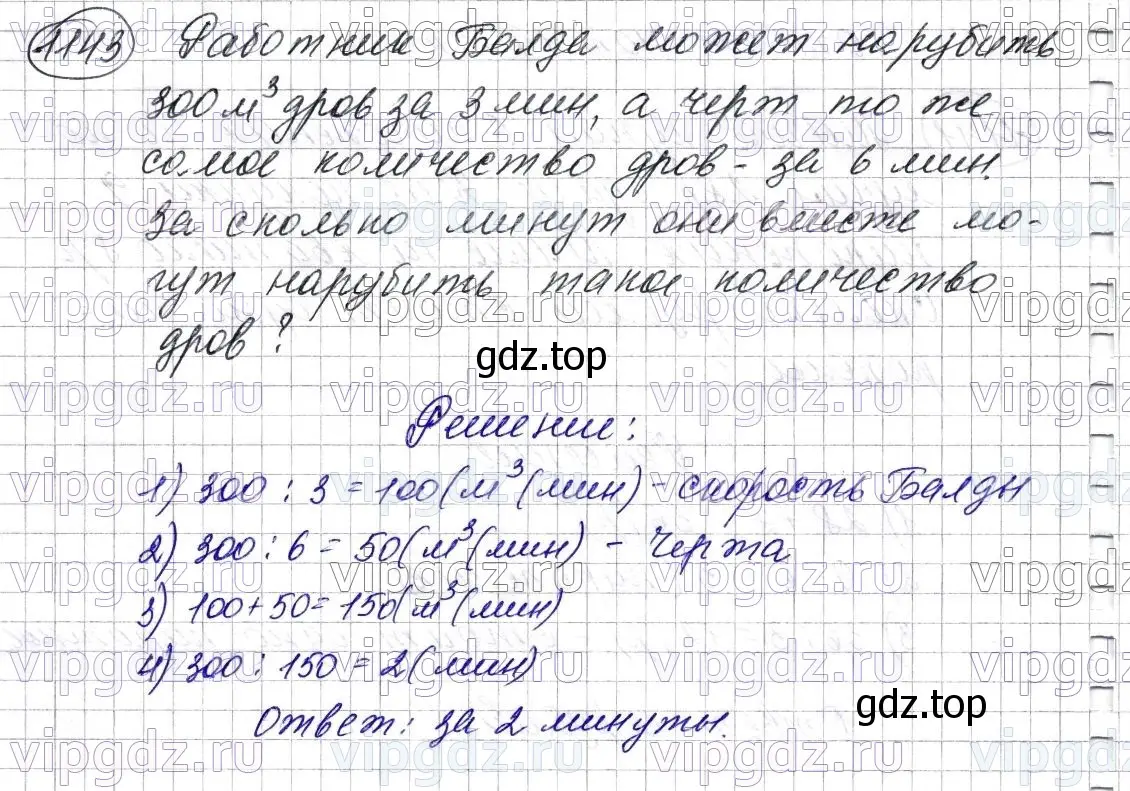 1143 Работник Балда может нарубить
300 м³ дров за 3 мин, а черт то же
самое количество дров - за 6 мин.
За сколько минут они вместе мо-
гут нарубить такое количество
дров?
gdz.top
Решение:
1) 300 : 3 = 100 (м³(мин) - скорость Балды
2) 300 : 6 = 50 (м³(мин) - Черта
3) 100 + 50 = 150 (м³(мин)
4) 300 : 150 = 2 (мин)
gdz.top
Ответ: за 2 минуты.